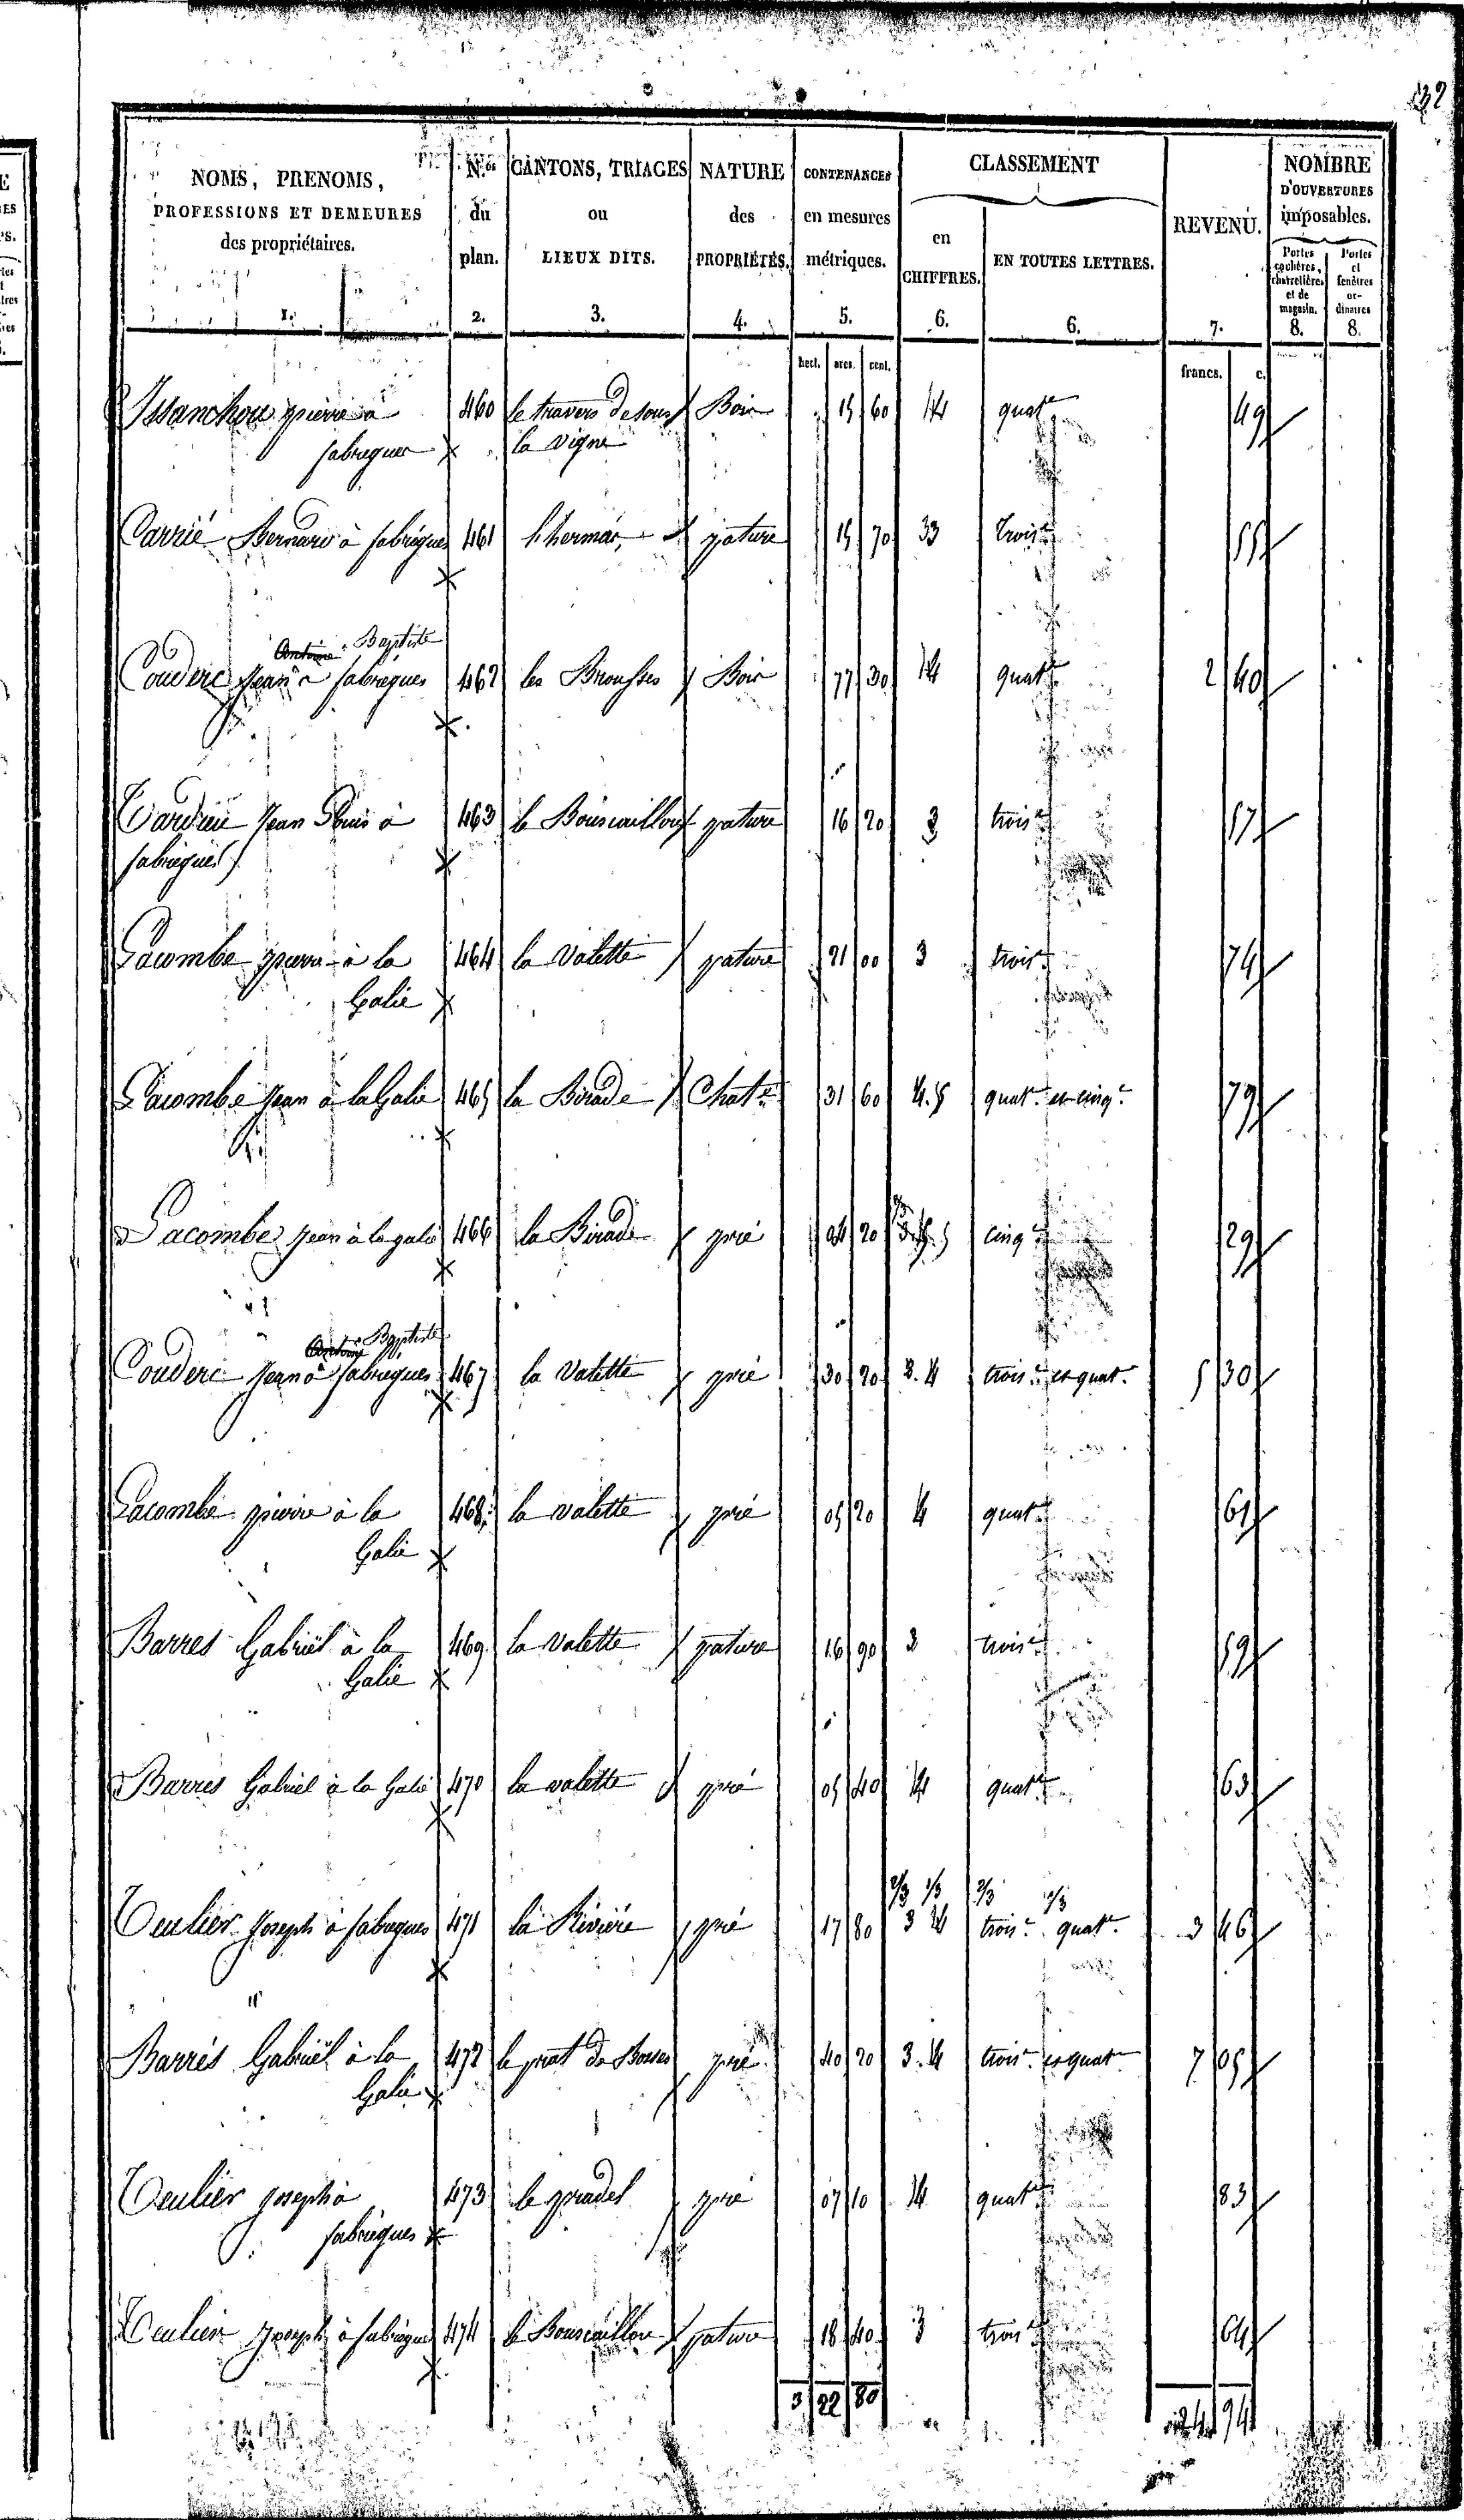 132
NOMS, PRENOMS,
PROFESSIONS ET DEMEURES
des propriétaires.
1.
N.os
du
plan.
2.
CANTONS, TRIAGES
ou
LIEUX DITS.
3.
NATURE
des
PROPRIÉTÉS.
4.
CONTENANCES
en mesures
métriques.
5.
CLASSEMENT
en
CHIFFRES.
6.
EN TOUTES LETTRES.
6.
REVENU.
7.
NOMBRE
D'OUVERTURES
imposables.
Portes cochères, charretières et de magasin.
8.
Portes et fenêtres ordinaires
8.
hect. ares. cent. francs. c.
Issanchou pierre à 460 le travers de sous Bois 15 60 4 quat.e 49
fabregues la vigne
Carrié Bernard à fabregues 461 l'hermás pature 15 70 3 trois.e 55
Antoine Baptiste
Couderc Jean à fabregues 462 les Brousses Bois 77 30 4 quat.e 2 40
Tardieu Jean Louis à 463 le Bouscaillou pature 16 20 3 trois.e 57
fabregues
Lacombe pierre à la 464 la Valette pature 21 00 3 trois.e 74
Galie
Lacombe Jean à la Galie 465 la Birade Chat.e 31 60 4.5 quat.e et cinq.e 79
Lacombe Jean à la galie 466 la Birade pré 04 20 5 cinq.e 29
Antoine Baptiste
Couderc Jean à fabregues 467 la Valette pré 30 20 3.4 trois.e et quat.e 5 30
Lacombe pierre à la 468 la Valette pré 05 20 4 quat.e 61
Galie
Barres Gabriel à la 469 la Valette pature 16 90 3 trois.e 59
Galie
Barres Gabriel à la Galie 470 la valette pré 05 40 4 quat.e 63
2/3 1/3 2/3 1/3
Teulier Joseph à fabregues 471 la Rivière pré 17 80 3 4 trois.e quat.e 3 46
Barrés Gabriel à la 472 le prat de Barres pré 40 20 3.4 trois.e et quat.e 7 05
Galie
Teulier Joseph à 473 le pradel pré 07 10 4 quat.e 83
fabregues
Teulier Joseph à fabregues 474 le Bouscaillou pature 18 40 3 trois.e 64
3 22 80 24 94